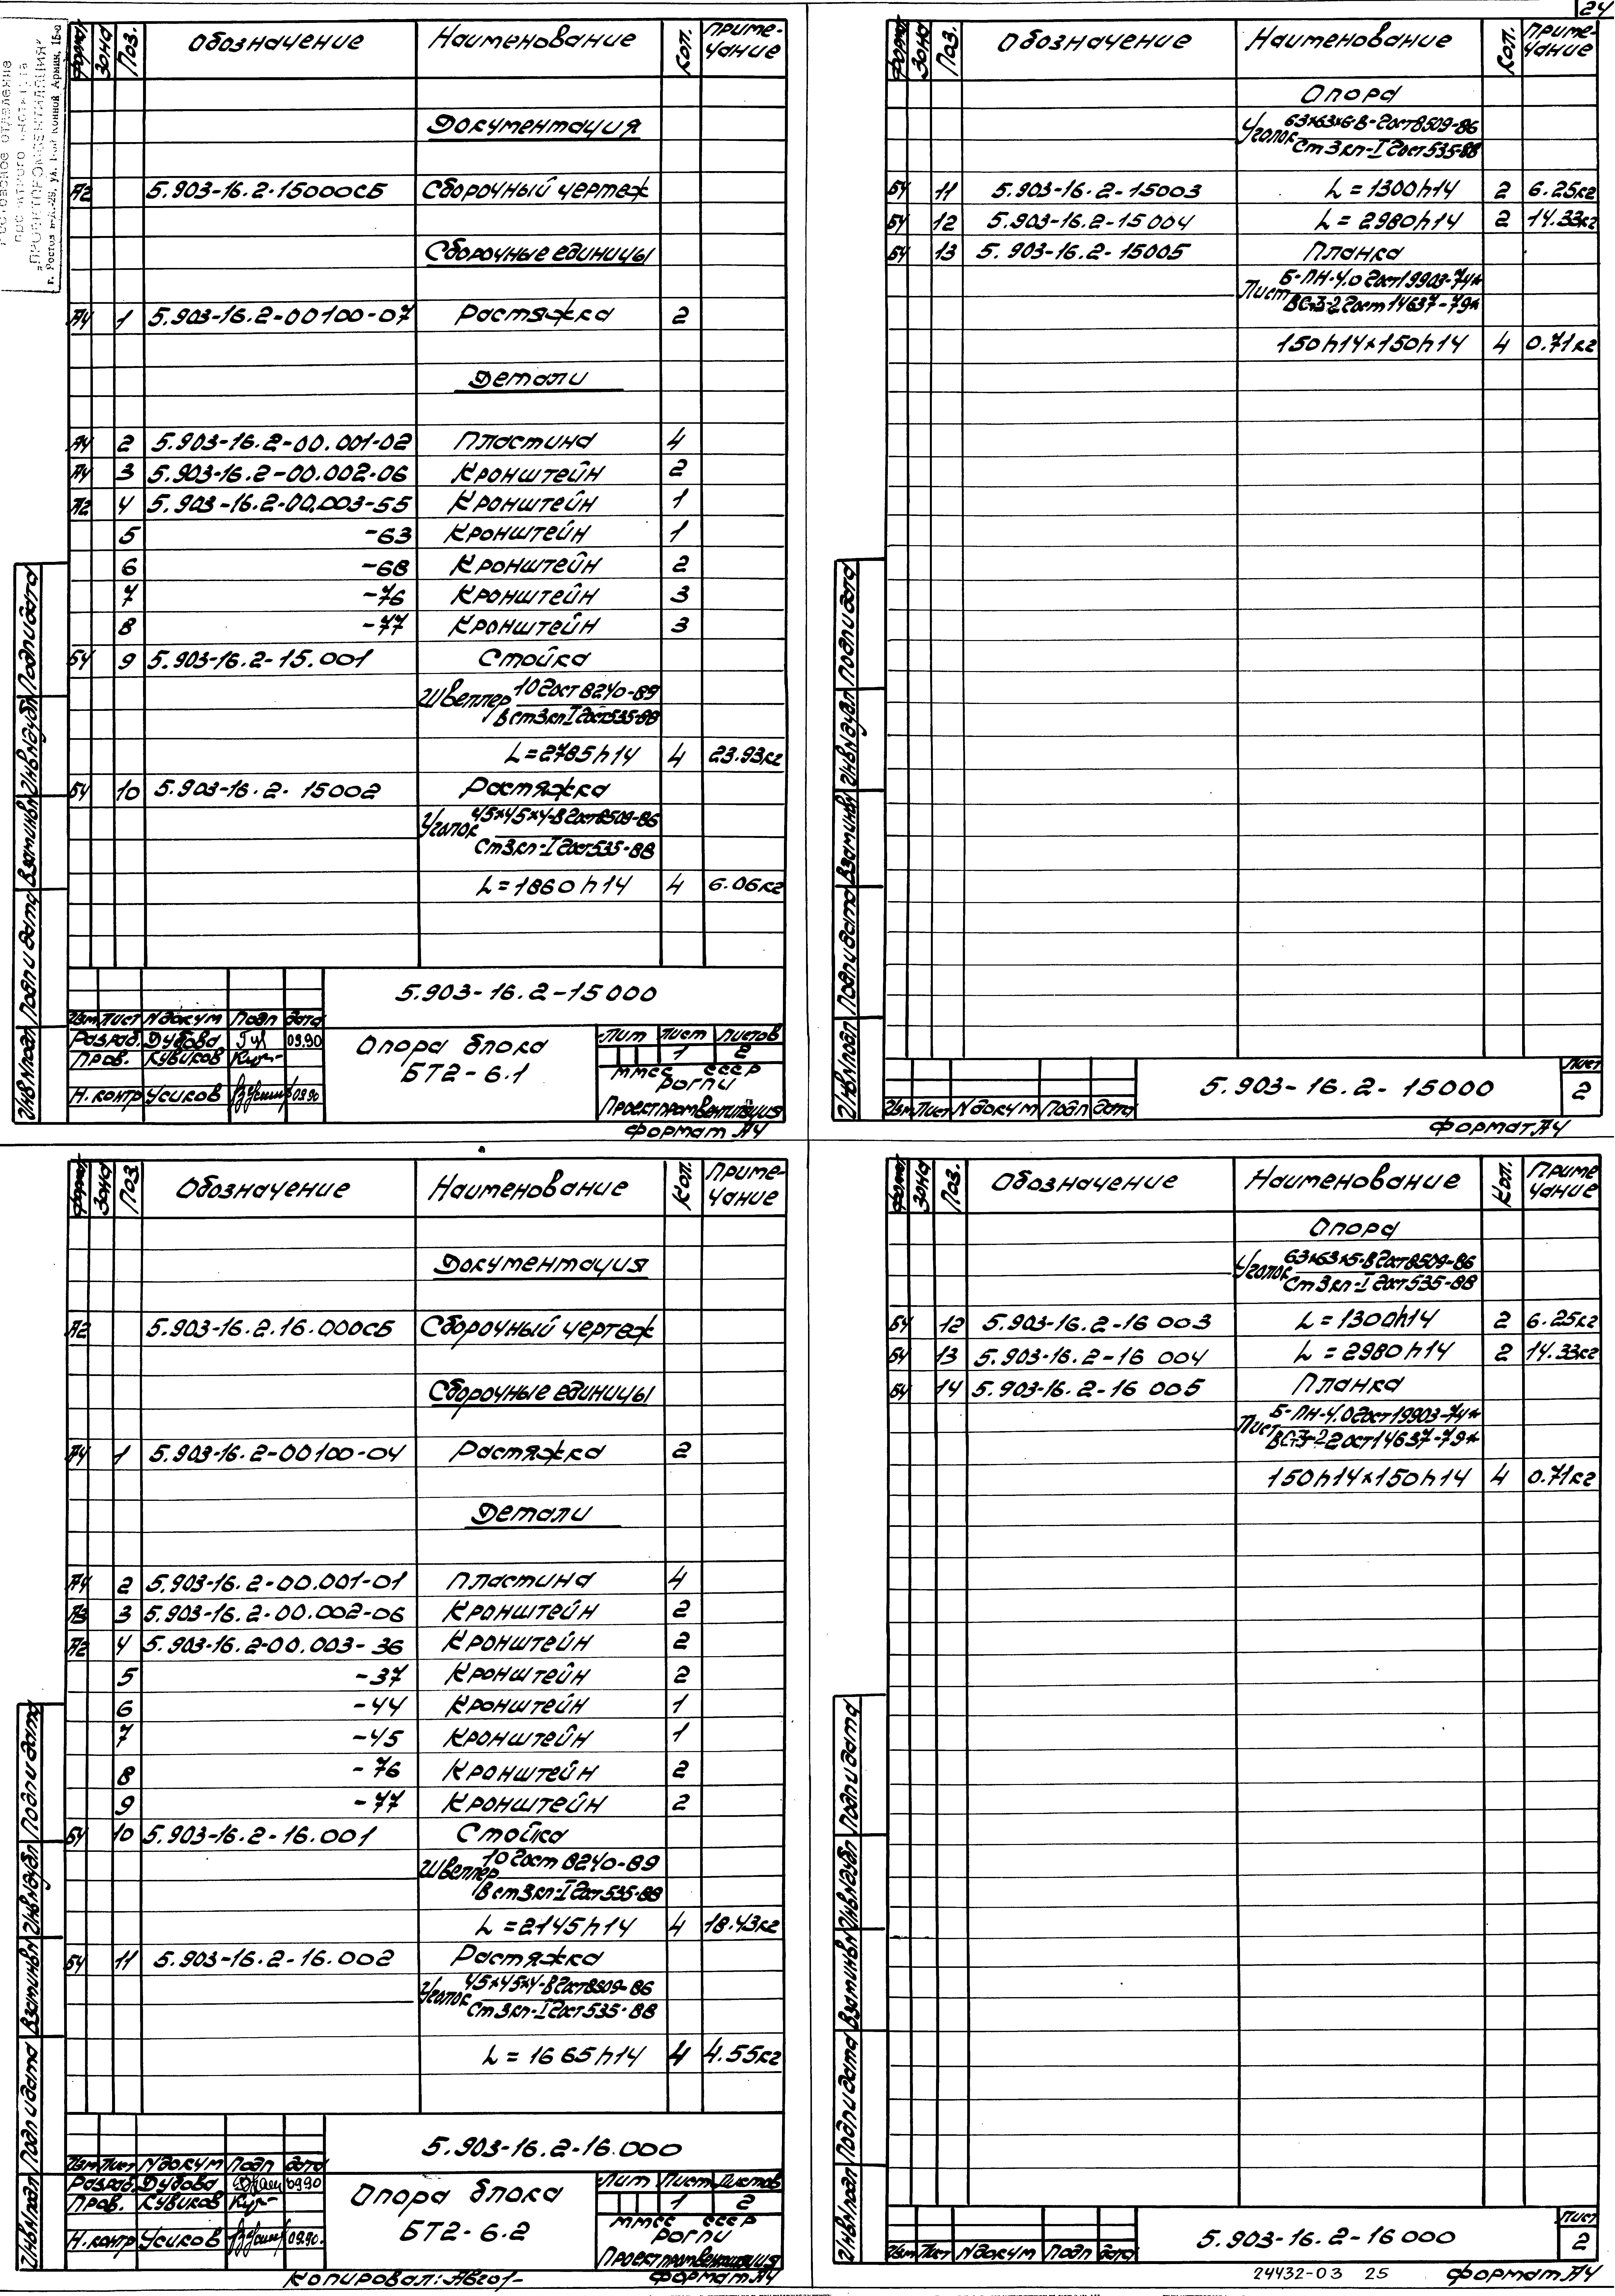 24
г. Ростов н/Д-29, ул. 1-ой Конной Армии, 15-а
Формат Зона Поз. Обозначение Наименование Кол. Приме-
чание
Документация
А2 5.903-16.2-15000СБ Сборочный чертеж
Сборочные единицы
А4 1 5.903-16.2-00100-07 Растяжка 2
Детали
А4 2 5.903-16.2-00.001-02 Пластина 4
А4 3 5.903-16.2-00.002-06 Кронштейн 2
А2 4 5.903-16.2-00.003-55 Кронштейн 1
5 -63 Кронштейн 1
6 -68 Кронштейн 2
7 -76 Кронштейн 3
8 -77 Кронштейн 3
БЧ 9 5.903-16.2-15.001 Стойка
Швеллер 10 Гост 8240-89
ВСт3кп-I Гост 535-88
L=2785h14 4 23.93кг
БЧ 10 5.903-16.2-15002 Растяжка
Уголок 45х45х4-В Гост 8509-86
Ст3кп-I Гост 535-88
L=1860h14 4 6.06кг
5.903-16.2-15000
Изм Лист N докум Подп Дата
Разраб. Дубова 09.90
Пров. Кувиков
Н.контр Усиков 09.90
Опора блока
БТ2-6.1
Лит Лист Листов
1 2
ММСС СССР
РОГПИ
Проектпромвентиляция
Формат А4
Инв N подл Подп и дата Взам инв N Инв N дубл Подп и дата
Формат Зона Поз. Обозначение Наименование Кол. Приме-
чание
Опора
Уголок 63х63х6-В-Гост 8509-86
Ст3кп-I Гост 535-88
БЧ 11 5.903-16.2-15003 L=1300h14 2 6.25кг
БЧ 12 5.903-16.2-15004 L=2980h14 2 14.33кг
БЧ 13 5.903-16.2-15005 Планка
Лист Б-ПН-4.0 Гост 19903-74*
ВСт3-2 Гост 14637-79*
150h14х150h14 4 0.71кг
Инв N подл Подп и дата Взам инв N Инв N дубл Подп и дата
Изм Лист N докум Подп Дата
5.903-16.2-15000
Лист
2
Формат А4
Формат Зона Поз. Обозначение Наименование Кол. Приме-
чание
Документация
А2 5.903-16.2.16.000СБ Сборочный чертеж
Сборочные единицы
А4 1 5.903-16.2-00100-04 Растяжка 2
Детали
А4 2 5.903-16.2-00.001-01 Пластина 4
А3 3 5.903-16.2-00.002-06 Кронштейн 2
А2 4 5.903-16.2-00.003-36 Кронштейн 2
5 -37 Кронштейн 2
6 -44 Кронштейн 1
7 -45 Кронштейн 1
8 -76 Кронштейн 2
9 -77 Кронштейн 2
БЧ 10 5.903-16.2-16.001 Стойка
Швеллер 10 Гост 8240-89
ВСт3кп-I Гост 535-88
L=2145h14 4 18.43кг
БЧ 11 5.903-16.2-16.002 Растяжка
Уголок 45х45х4-В Гост 8509-86
Ст3кп-I Гост 535-88
L=1665h14 4 4.55кг
5.903-16.2-16.000
Изм Лист N докум Подп Дата
Разраб. Дубова 09.90
Пров. Кувиков
Н.контр Усиков 09.90.
Опора блока
БТ2-6.2
Лит Лист Листов
1 2
ММСС СССР
РОГПИ
Проектпромвентиляция
Копировал: Формат А4
Инв N подл Подп и дата Взам инв N Инв N дубл Подп и дата
Формат Зона Поз. Обозначение Наименование Кол. Приме
чание
Опора
Уголок 63х63х5-В Гост 8509-86
Ст3кп-I Гост 535-88
БЧ 12 5.903-16.2-16 003 L=1300h14 2 6.25кг
БЧ 13 5.903-16.2-16 004 L=2980h14 2 14.33кг
БЧ 14 5.903-16.2-16 005 Планка
Лист Б-ПН-4.0 Гост 19903-74*
ВСт3-2 Гост 14637-79*
150h14х150h14 4 0.71кг
Инв N подл Подп и дата Взам инв N Инв N дубл Подп и дата
Изм Лист N докум Подп Дата
5.903-16.2-16000
Лист
2
24432-03 25 Формат А4